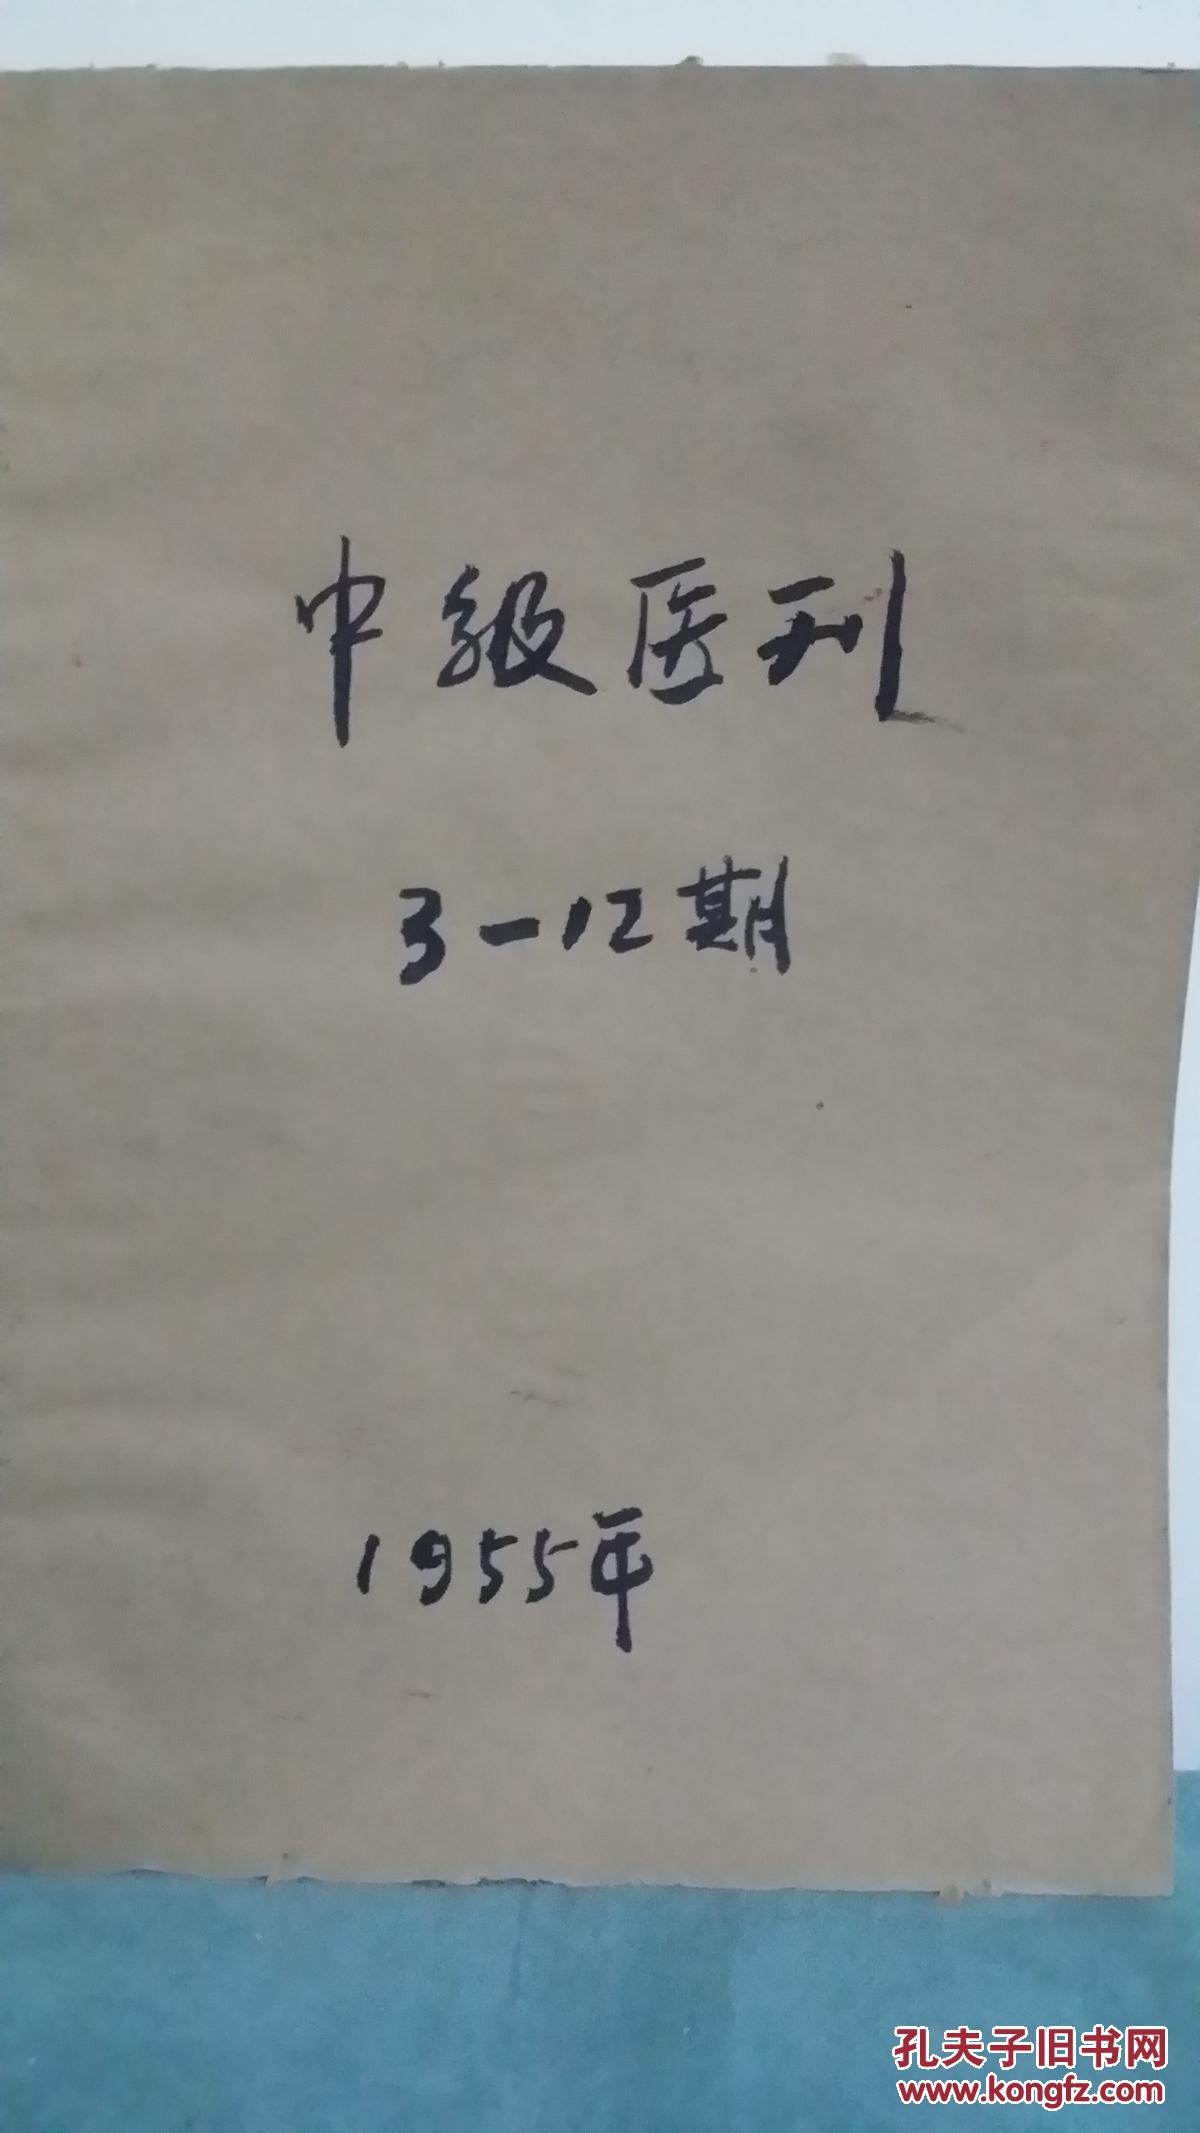 中级医刊
3-12期
1955年
孔夫子旧书网
www.kongfz.com